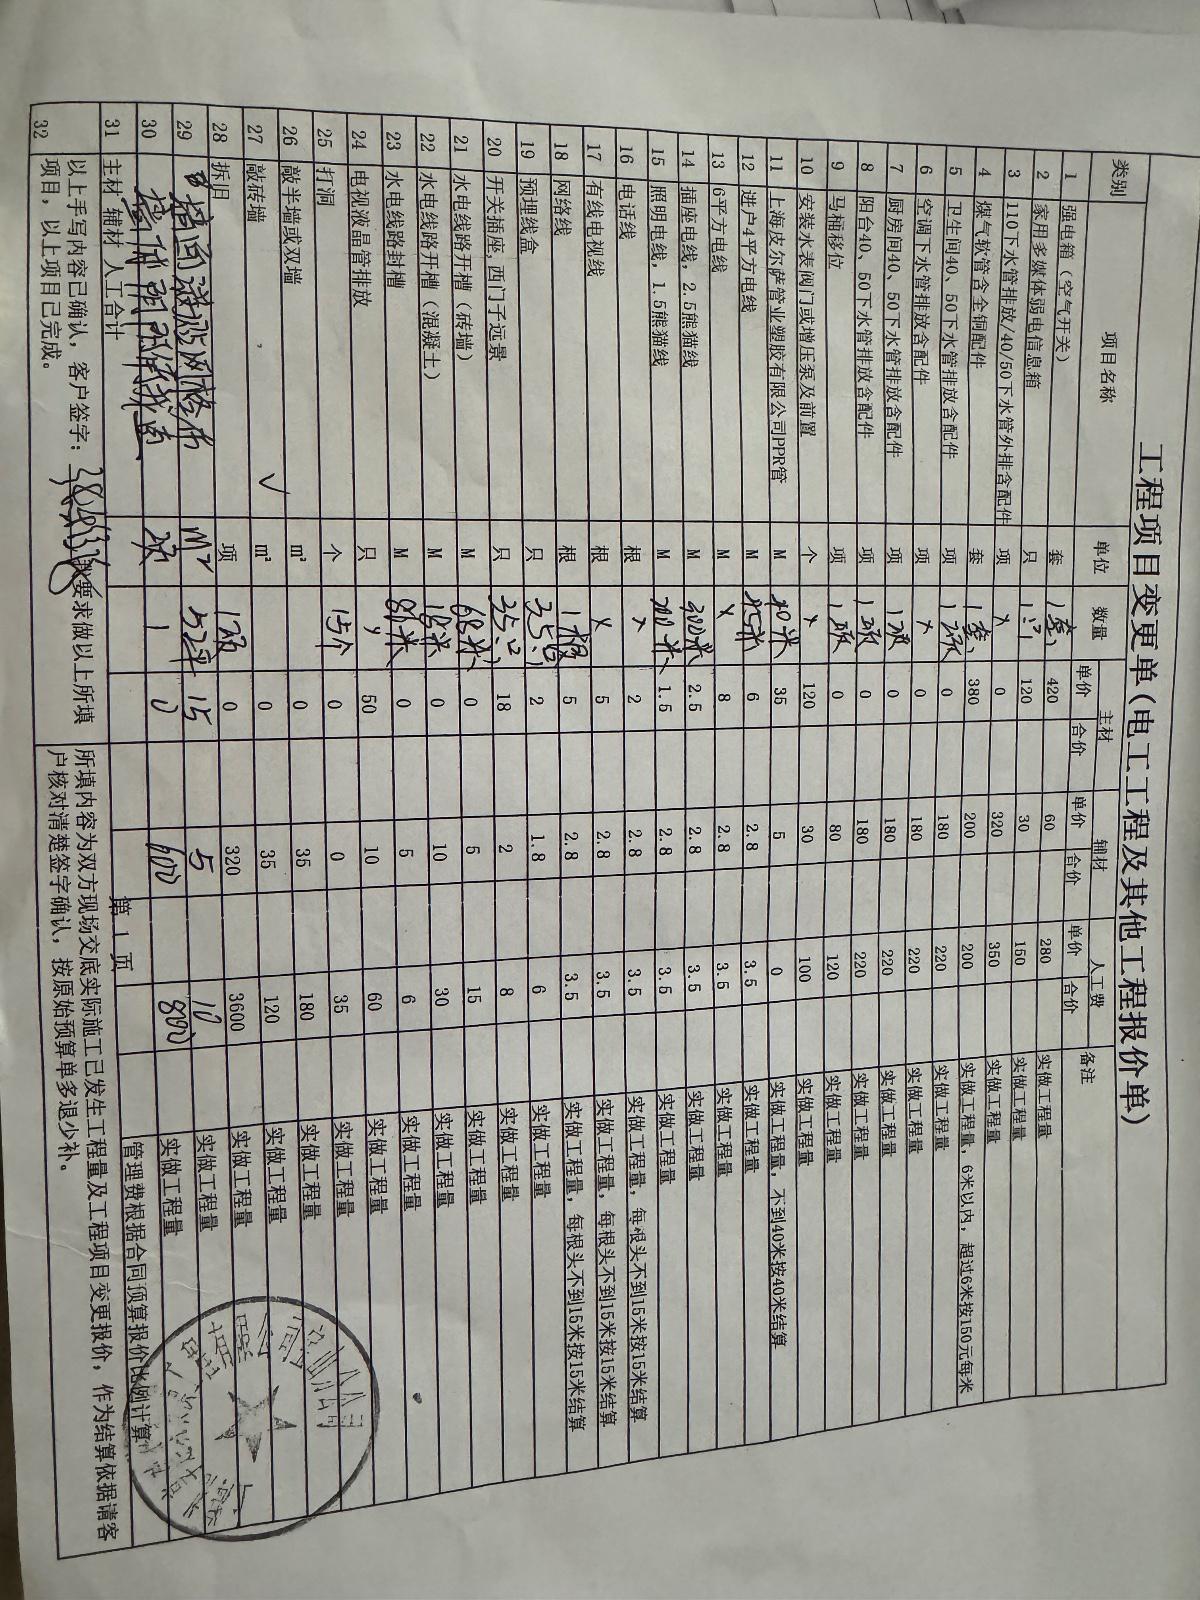 工程项目变更单(电工工程及其他工程报价单)
类别 项目名称 单位 数量 主材 辅材 人工费 备注
单价 合价 单价 合价 单价 合价
1 强电箱（空气开关） 套 1套 420 60 280 实做工程量
2 家用多媒体弱电信息箱 只 1只 120 30 150 实做工程量
3 110下水管排放/40/50下水管外排含配件 项 x 0 320 350 实做工程量
4 煤气软管含全铜配件 套 1套 380 200 200 实做工程量，6米以内，超过6米按150元每米
5 卫生间40、50下水管排放含配件 项 1项 0 180 220 实做工程量
6 空调下水管排放含配件 项 x 0 180 220 实做工程量
7 厨房间40、50下水管排放含配件 项 1项 0 180 220 实做工程量
8 阳台40、50下水管排放含配件 项 1项 0 180 220 实做工程量
9 马桶移位 项 1项 0 80 120 实做工程量
10 安装水表阀门或增压泵及前置 个 x 120 30 100 实做工程量
11 上海皮尔萨管业塑胶有限公司PPR管 M 40米 35 5 0 实做工程量，不到40米按40米结算
12 进户4平方电线 M 6 2.8 3.5 实做工程量
13 6平方电线 M x 8 2.8 3.5 实做工程量
14 插座电线，2.5熊猫线 M 300米 2.5 2.8 3.5 实做工程量
15 照明电线，1.5熊猫线 M 200米 1.5 2.8 3.5 实做工程量
16 电话线 根 x 2 2.8 3.5 实做工程量，每根头不到15米按15米结算
17 有线电视线 根 x 5 2.8 3.5 实做工程量，每根头不到15米按15米结算
18 网络线 根 1根 5 2.8 3.5 实做工程量，每根头不到15米按15米结算
19 预埋线盒 只 35只 2 1.8 6 实做工程量
20 开关插座，西门子远景 只 35只 18 2 8 实做工程量
21 水电线路开槽（砖墙） M 68米 0 5 15 实做工程量
22 水电线路开槽（混凝土） M 18米 0 10 30 实做工程量
23 水电线路封槽 M 86米 0 5 6 实做工程量
24 电视液晶管排放 只 50 10 60 实做工程量
25 打洞 个 15个 0 0 35 实做工程量
26 敲半墙或双墙 m² 0 35 180 实做工程量
27 敲砖墙 √ m² 0 35 120 实做工程量
28 拆旧 项 1项 0 320 3600 实做工程量
29 墙面 网格布 m² 52平 15 5 10 实做工程量
30 项 1 0 600 800 实做工程量
31 主材 辅材 人工合计 管理费根据合同预算报价比例计算
32 以上手写内容已确认，客户签字： 我要求做以上所填项目，以上项目已完成。
所填内容为双方现场交底实际施工已发生工程量及工程项目变更报价，作为结算依据请客户核对清楚签字确认，按原始预算单多退少补。
第 1 页